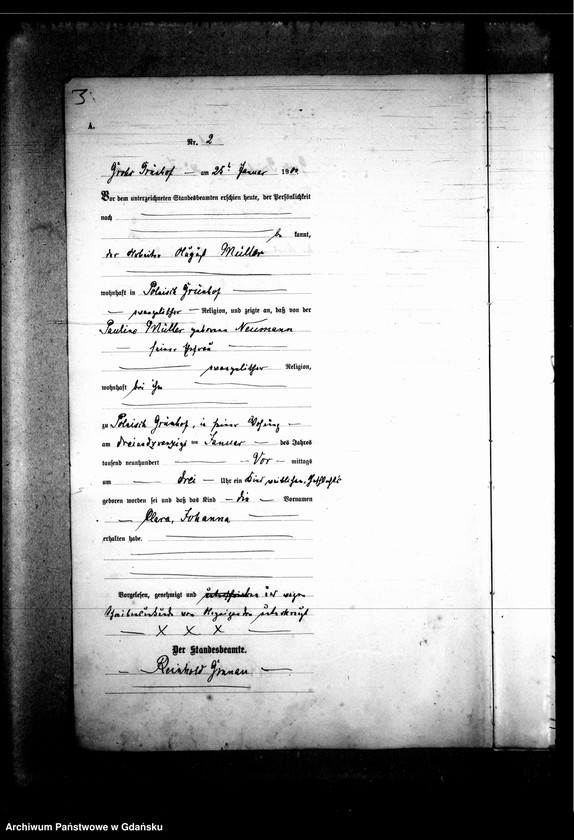 3.
A.
Nr. 2
am 25t Januar 1900
Vor dem unterzeichneten Standesbeamten erschien heute, der Persönlichkeit
nach
be kannt,
der Arbeiter August Müller
wohnhaft in Polnisch Grünhof
evangelischer Religion, und zeigte an, daß von der
Pauline Müller geborene Neumann
seiner Ehefrau
evangelischer Religion,
wohnhaft bei ihm
zu Polnisch Grünhof, in seiner Wohnung
am dreiundzwanzigsten Januar des Jahres
tausend neunhundert Vor mittags
um drei Uhr ein Kind weiblichen Geschlechts
geboren worden sei und daß das Kind die Vornamen
Clara, Johanna
erhalten habe.
Vorgelesen, genehmigt und wegen
Schreibensunkunde vom Anzeigenden unterkreuzt
X X X
Der Standesbeamte.
Reinhold
Archiwum Państwowe w Gdańsku